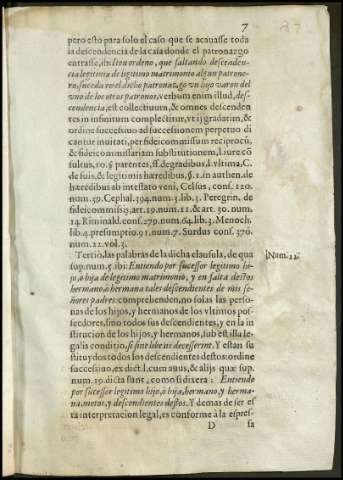 7
27
pero esto para solo el caso que se acauasse toda
la descendencia de la casa donde el patronazgo
entrasse, ibi Iten ordeno, que faltando descenden-
cia legitima de legitimo matrimonio algun patrone-
ro, suceda en el dicho patronazgo vn hijo varon del
vno de los otros patronos, verbum enim illud, des-
cendencia, est collectiuum, & omnes descenden-
tes in infinitum complectitur, vt ij gradatim, &
ordine successiuo ad successionem perpetuo di-
cantur inuitati, per fideicommissum reciprocũ,
& fideicommissariam substitutionem, l. iure cõ
sultus, 10. §. parentes, ff. de gradibus, l. vltima, C.
de suis, & legitimis hæredibus, §. 1. in authen. de
hæredibus ab intestato veni, Celsus, cons. 120.
num. 59. Cephal. 394. num. 3. lib. 3. Peregrin. de
fideicommissis, art. 19. num. 11. & art. 30. num.
14. Riminald. cons. 279. num. 64. lib. 3. Menoch.
lib. 4. presumptio. 91. num. 7. Surdus cons. 370.
num. 22. vol. 3.
Tertiò, las palabras de la dicha clausula, de qua
Num. 22.
sup. num. 5. ibi: Entiendo por sucessor legitimo hi-
jo, o hija de legitimo matrimonio, y en falta destos
hermano, o hermana tales descendientes de mis se-
ñores padres: comprehenden, no solas las perso-
nas de los hijos, y hermanos de los vltimos pos-
seedores, sino todos sus descendientes, y en la in
stitucion de los hijos, y hermanos, sub est illa le-
galis conditio, si sine liberis decesserint. Y estan su
stituydos todos los descendientes destos: ordine
successiuo, ex dict. l. cum auus, & alijs quæ sup.
num. 19. dicta sunt, como si dixera: Entiendo
por sucessor legitimo hijo, ò hija, hermano, y herma-
na, nietos, y descendientes destos. Y demas de ser es
ta interpretacion legal, es conforme à la espres-
D
sa